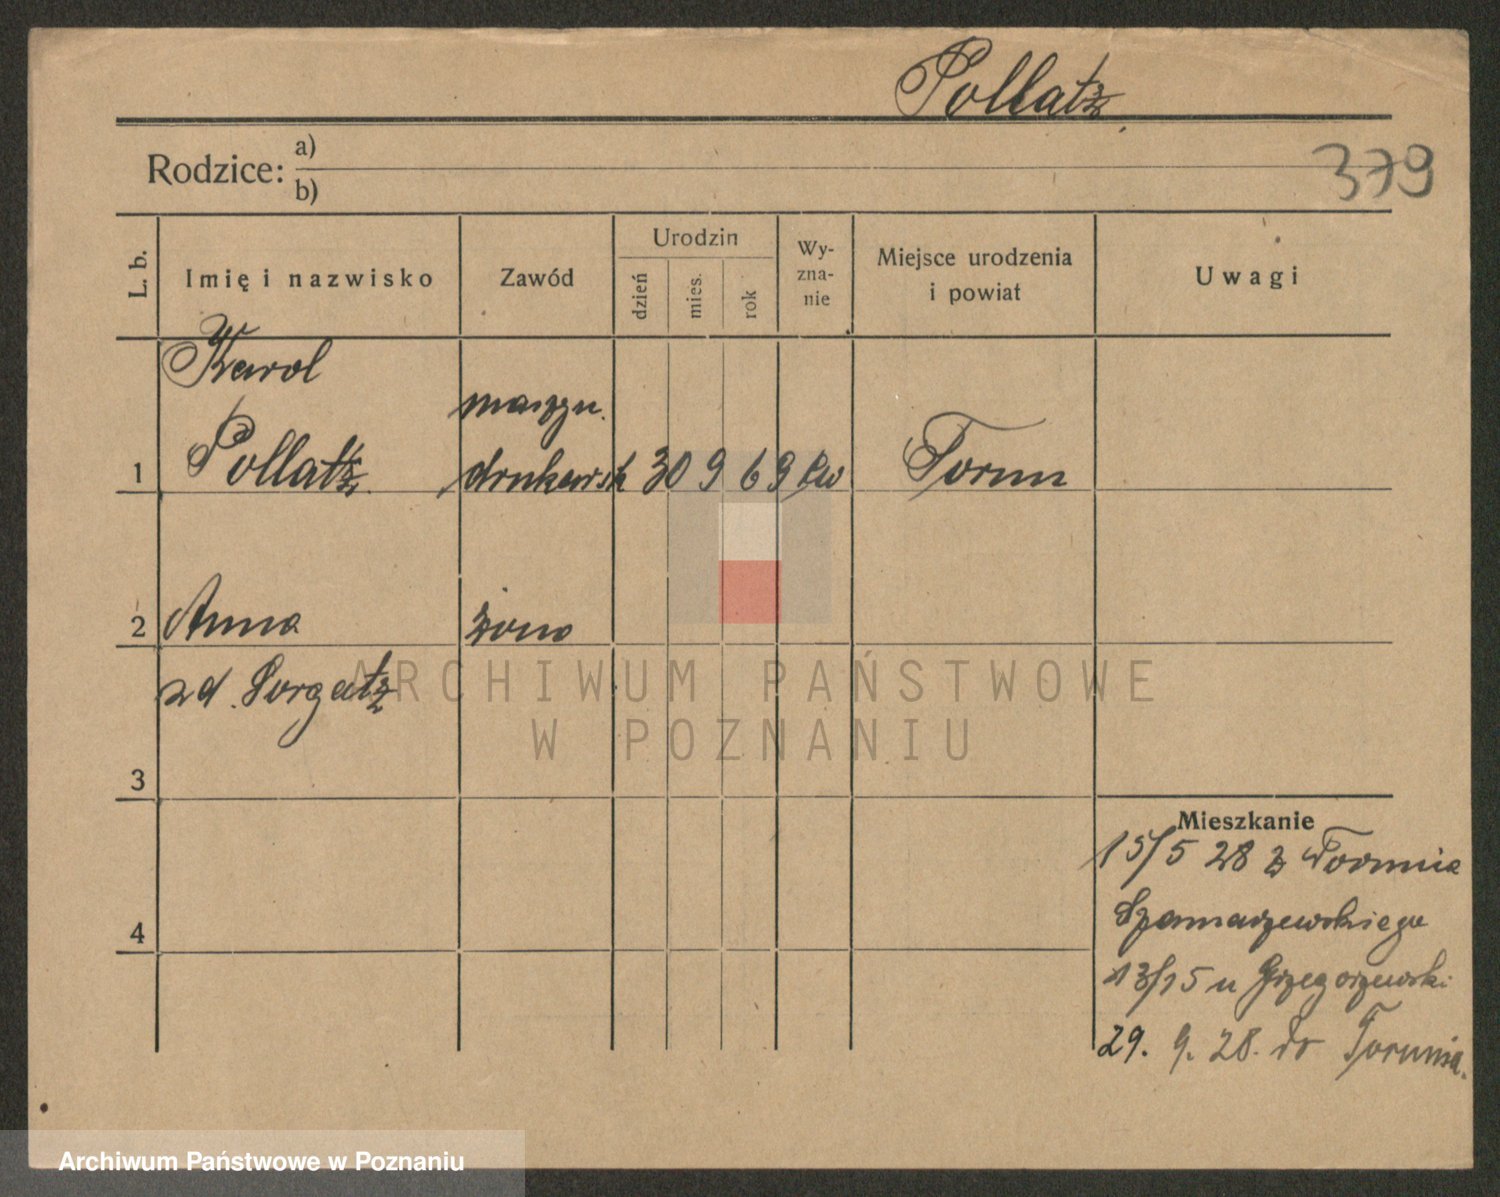 Pollatz
Rodzice: a)
b)
379
L. b.
Imię i nazwisko
Zawód
Urodzin
dzień
mies.
rok
Wy-
zna-
nie
Miejsce urodzenia
i powiat
Uwagi
Karol
maszyn.
1 Pollatz drukarsk 30 9 69 Torun
2 Anna żona
zd. Sorgatz
3
4
Mieszkanie
15/5 28 z Torunia
Szamarzewskiego
13/15 u Grzegorzewski
29. 9. 28. do Torunia.
ARCHIWUM PAŃSTWOWE
W POZNANIU
Archiwum Państwowe w Poznaniu